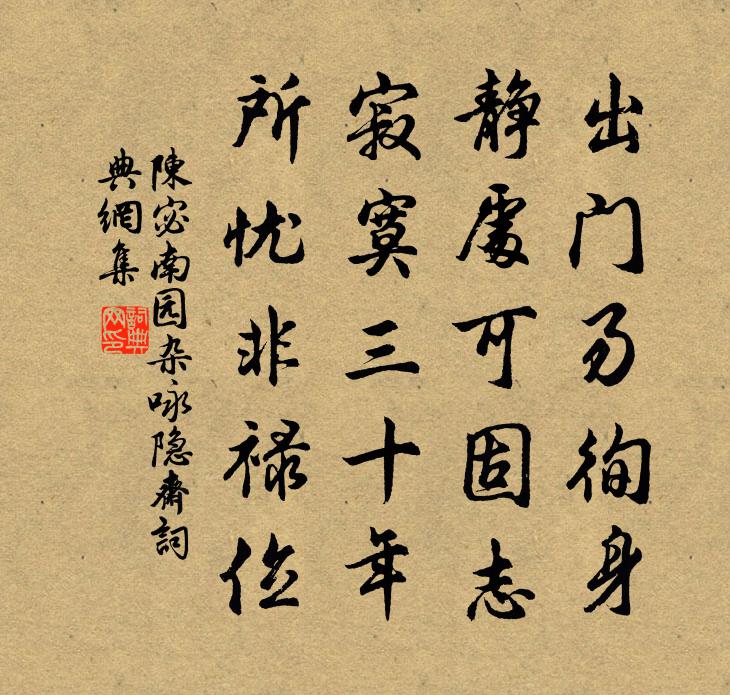 出门易徇身
静處可固志
寂寞三十年
所忧非禄位
陳宓南园杂咏隐齋詞
典網集
詞典
网印